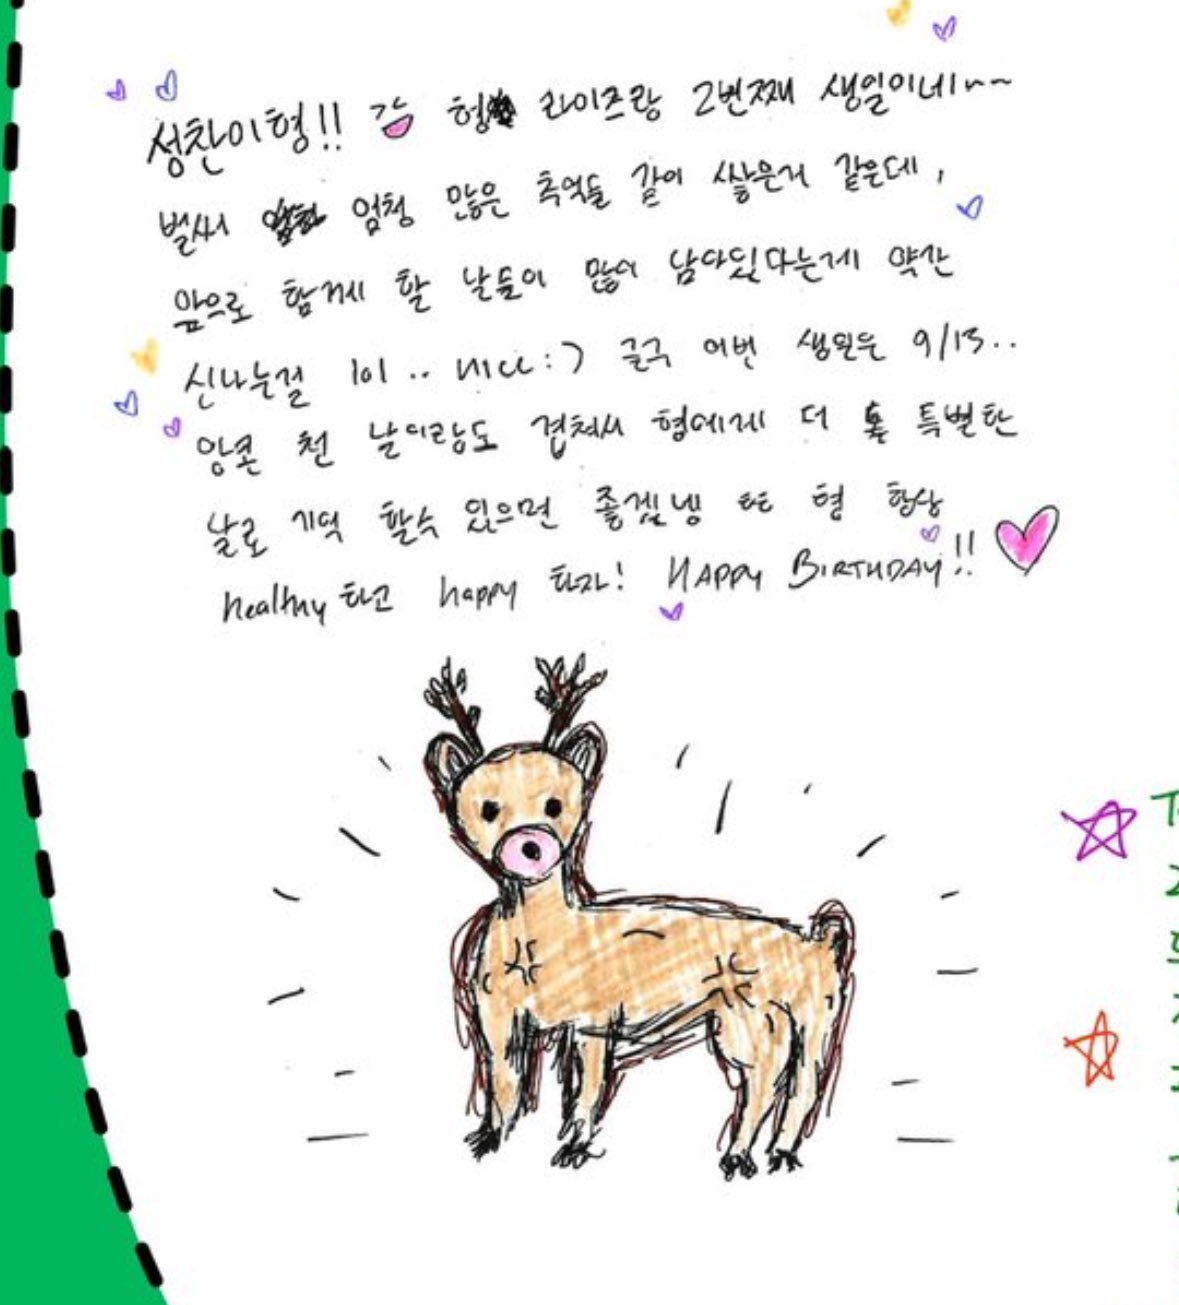 성찬이형!! 형 라이즈랑 2번째 생일이네~~
벌써 엄청 많은 추억들 같이 쌓은거 같은데,
앞으로 함께 할 날들이 많이 남아있다는게 약간
신나는걸 lol .. nice :) 결국 이번 생일은 9/13..
앙콘 첫 날이랑도 겹쳐서 형에게 더 특별한
날로 기억 할수 있으면 좋겠넹 또 형 항상
healthy 하고 happy 하자! HAPPY BIRTHDAY!!